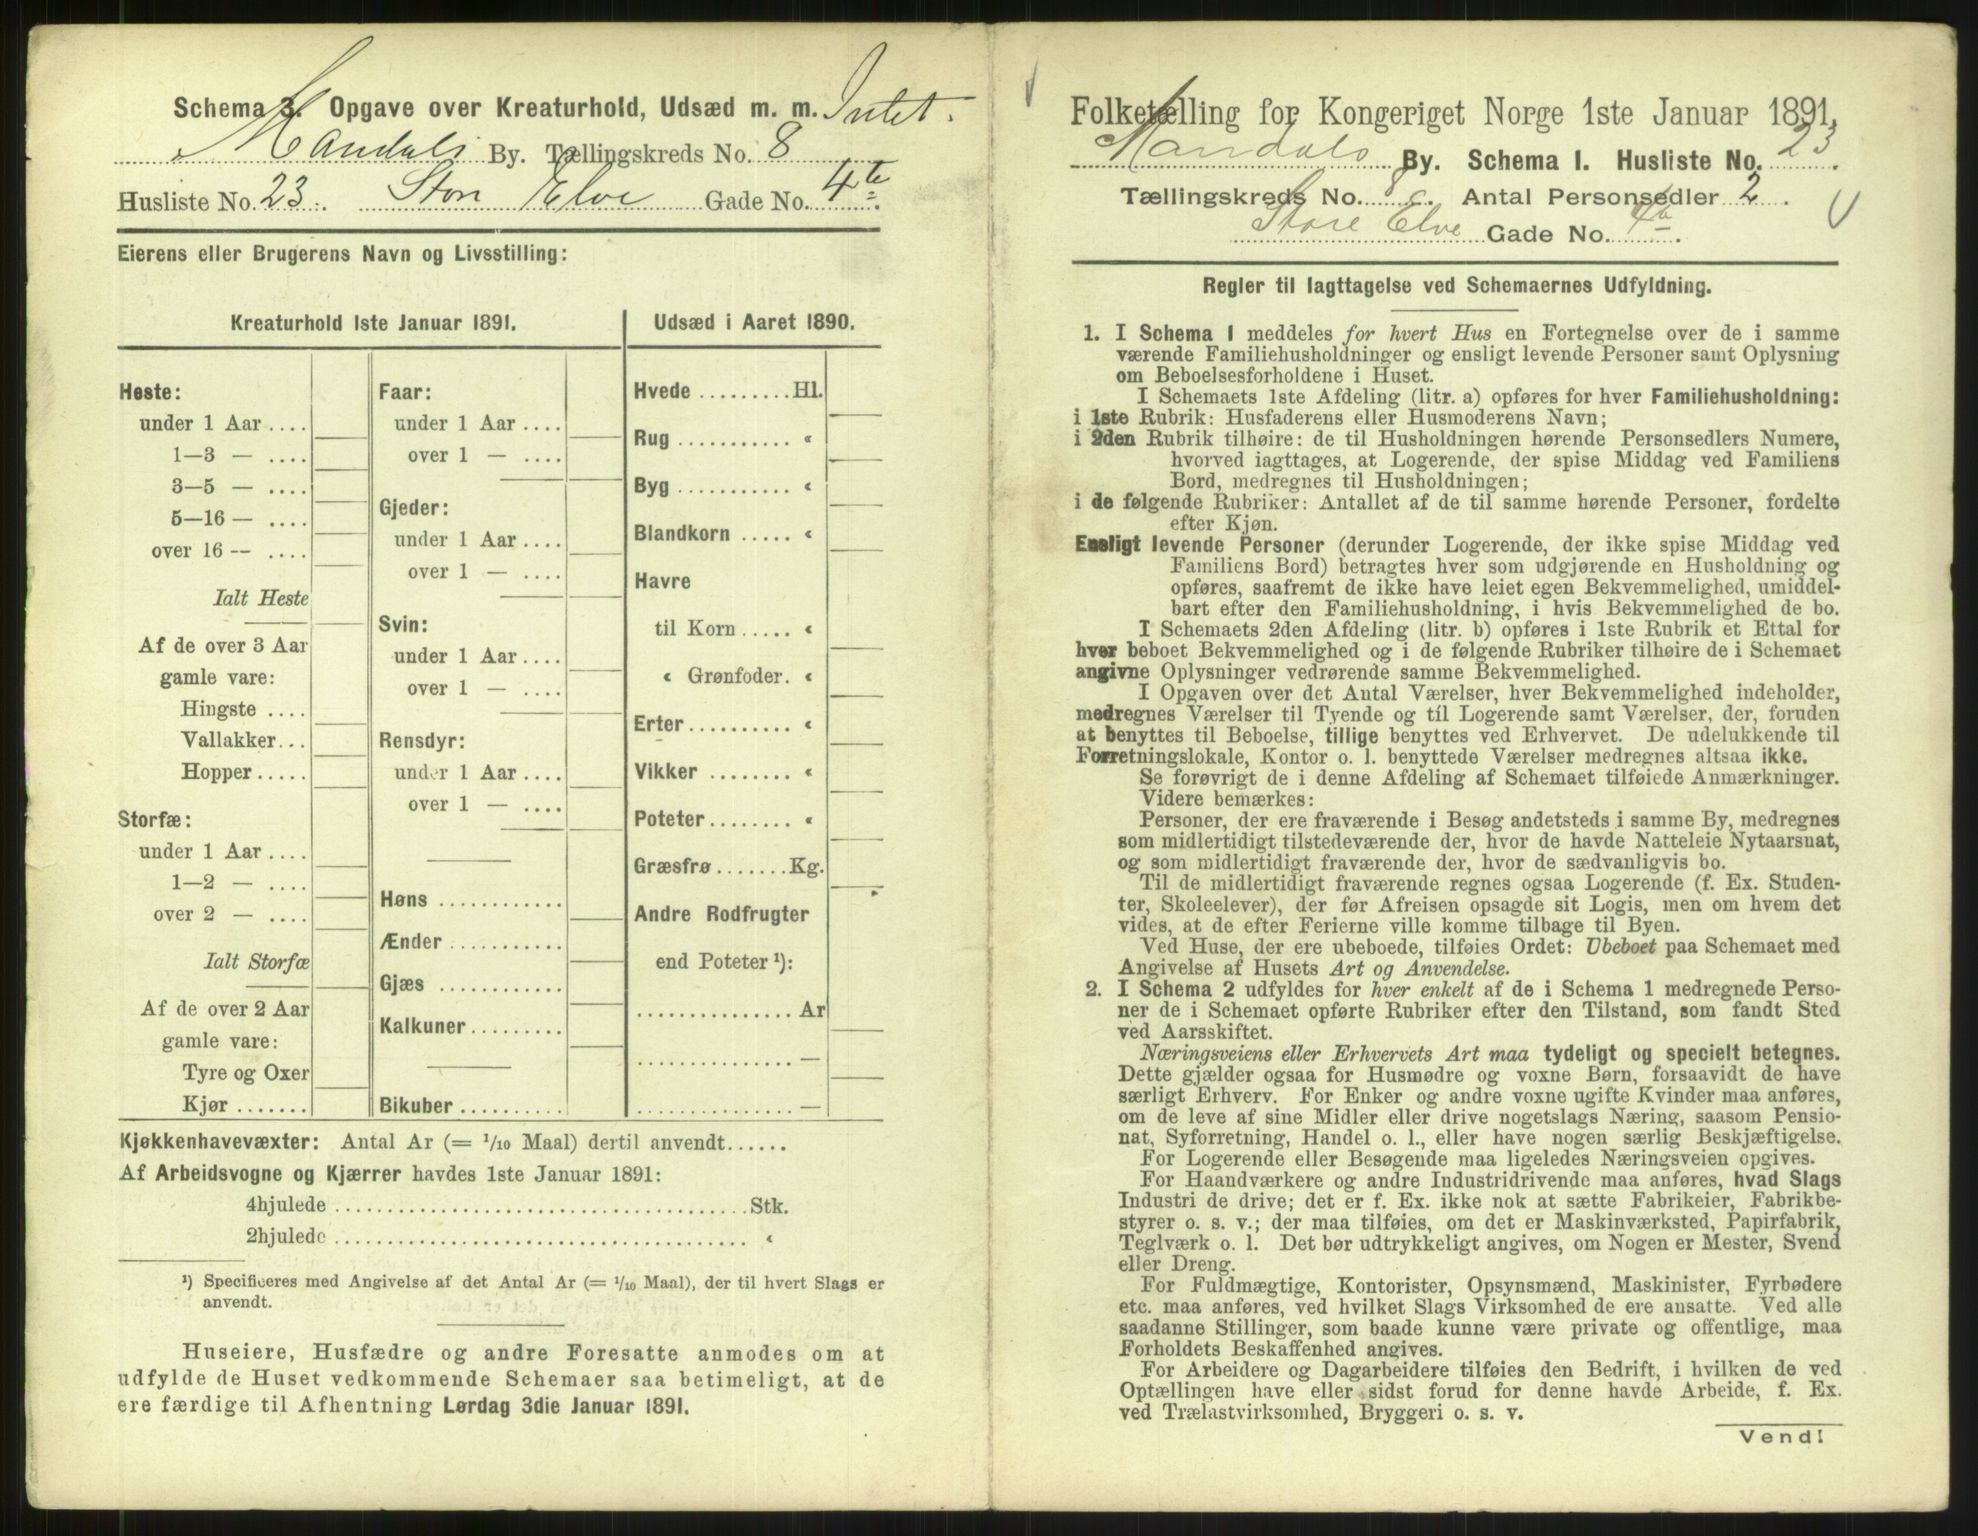 Schema 3. Opgave over Kreaturhold, Udsæd m. m. Intet.
Mandals By. Tællingskreds No. 8
Husliste No. 23. Stor Elve Gade No. 4te.
Eierens eller Brugerens Navn og Livsstilling:
Kreaturhold 1ste Januar 1891.
Heste:
under 1 Aar ....
1—3 — ....
3—5 — ....
5—16 — ....
over 16 — ....
Ialt Heste
Af de over 3 Aar
gamle vare:
Hingste ....
Vallakker...
Hopper.....
Storfæ:
under 1 Aar ....
1—2 — ....
over 2 — ....
Ialt Storfæ
Af de over 2 Aar
gamle vare:
Tyre og Oxer
Kjør .......
Faar:
under 1 Aar ....
over 1 — ....
Gjeder:
under 1 Aar ....
over 1 — ....
Svin:
under 1 Aar ....
over 1 — ....
Rensdyr:
under 1 Aar ....
over 1 — ....
Høns ............
Ænder ...........
Gjæs ............
Kalkuner .........
Bikuber ..........
Udsæd i Aaret 1890.
Hvede .........Hl.
Rug ........... «
Byg ........... «
Blandkorn ..... «
Havre
til Korn ..... «
« Grønfoder. «
Erter .......... «
Vikker ........ «
Poteter ........ «
Græsfrø .......Kg.
Andre Rodfrugter
end Poteter ¹):
............... Ar
............... —
............... —
Kjøkkenhavevæxter: Antal Ar (= 1/10 Maal) dertil anvendt......
Af Arbeidsvogne og Kjærrer havdes 1ste Januar 1891:
4hjulede ........................................Stk.
2hjulede ........................................ «
¹) Specificeres med Angivelse af det Antal Ar (= 1/10 Maal), der til hvert Slags er
anvendt.
Huseiere, Husfædre og andre Foresatte anmodes om at
udfylde de Huset vedkommende Schemaer saa betimeligt, at de
ere færdige til Afhentning Lørdag 3die Januar 1891.
Folketælling for Kongeriget Norge 1ste Januar 1891.
Mandals By. Schema I. Husliste No. 23.
Tællingskreds No. 8. Antal Personsedler 2.
Store Elve Gade No. 4b.
Regler til Iagttagelse ved Schemaernes Udfyldning.
1. I Schema 1 meddeles for hvert Hus en Fortegnelse over de i samme
værende Familiehusholdninger og ensligt levende Personer samt Oplysning
om Beboelsesforholdene i Huset.
I Schemaets 1ste Afdeling (litr. a) opføres for hver Familiehusholdning:
i 1ste Rubrik: Husfaderens eller Husmoderens Navn;
i 2den Rubrik tilhøire: de til Husholdningen hørende Personsedlers Numere,
hvorved iagttages, at Logerende, der spise Middag ved Familiens
Bord, medregnes til Husholdningen;
i de følgende Rubriker: Antallet af de til samme hørende Personer, fordelte
efter Kjøn.
Ensligt levende Personer (derunder Logerende, der ikke spise Middag ved
Familiens Bord) betragtes hver som udgjørende en Husholdning og
opføres, saafremt de ikke have leiet egen Bekvemmelighed, umiddel-
bart efter den Familiehusholdning, i hvis Bekvemmelighed de bo.
I Schemaets 2den Afdeling (litr. b) opføres i 1ste Rubrik et Ettal for
hver beboet Bekvemmelighed og i de følgende Rubriker tilhøire de i Schemaet
angivne Oplysninger vedrørende samme Bekvemmelighed.
I Opgaven over det Antal Værelser, hver Bekvemmelighed indeholder,
medregnes Værelser til Tyende og til Logerende samt Værelser, der, foruden
at benyttes til Beboelse, tillige benyttes ved Erhvervet. De udelukkende til
Forretningslokale, Kontor o. l. benyttede Værelser medregnes altsaa ikke.
Se forøvrigt de i denne Afdeling af Schemaet tilføiede Anmærkninger.
Videre bemærkes:
Personer, der ere fraværende i Besøg andetsteds i samme By, medregnes
som midlertidigt tilstedeværende der, hvor de havde Natteleie Nytaarsnat,
og som midlertidigt fraværende der, hvor de sædvanligvis bo.
Til de midlertidigt fraværende regnes ogsaa Logerende (f. Ex. Studen-
ter, Skoleelever), der før Afreisen opsagde sit Logis, men om hvem det
vides, at de efter Ferierne ville komme tilbage til Byen.
Ved Huse, der ere ubeboede, tilføies Ordet: Ubeboet paa Schemaet med
Angivelse af Husets Art og Anvendelse.
2. I Schema 2 udfyldes for hver enkelt af de i Schema 1 medregnede Perso-
ner de i Schemaet opførte Rubriker efter den Tilstand, som fandt Sted
ved Aarsskiftet.
Næringsveiens eller Erhvervets Art maa tydeligt og specielt betegnes.
Dette gjælder ogsaa for Husmødre og voxne Børn, forsaavidt de have
særligt Erhverv. For Enker og andre voxne ugifte Kvinder maa anføres,
om de leve af sine Midler eller drive nogetslags Næring, saasom Pensio-
nat, Syforretning, Handel o. l., eller have nogen særlig Beskjæftigelse.
For Logerende eller Besøgende maa ligeledes Næringsveien opgives.
For Haandværkere og andre Industridrivende maa anføres, hvad Slags
Industri de drive; det er f. Ex. ikke nok at sætte Fabrikeier, Fabrikbe-
styrer o. s. v.; der maa tilføies, om det er Maskinværksted, Papirfabrik,
Teglværk o. l. Det bør udtrykkeligt angives, om Nogen er Mester, Svend
eller Dreng.
For Fuldmægtige, Kontorister, Opsynsmænd, Maskinister, Fyrbødere
etc. maa anføres, ved hvilket Slags Virksomhed de ere ansatte. Ved alle
saadanne Stillinger, som baade kunne være private og offentlige, maa
Forholdets Beskaffenhed angives.
For Arbeidere og Dagarbeidere tilføies den Bedrift, i hvilken de ved
Optællingen have eller sidst forud for denne havde Arbeide, f. Ex.
ved Trælastvirksomhed, Bryggeri o. s. v.
Vend!